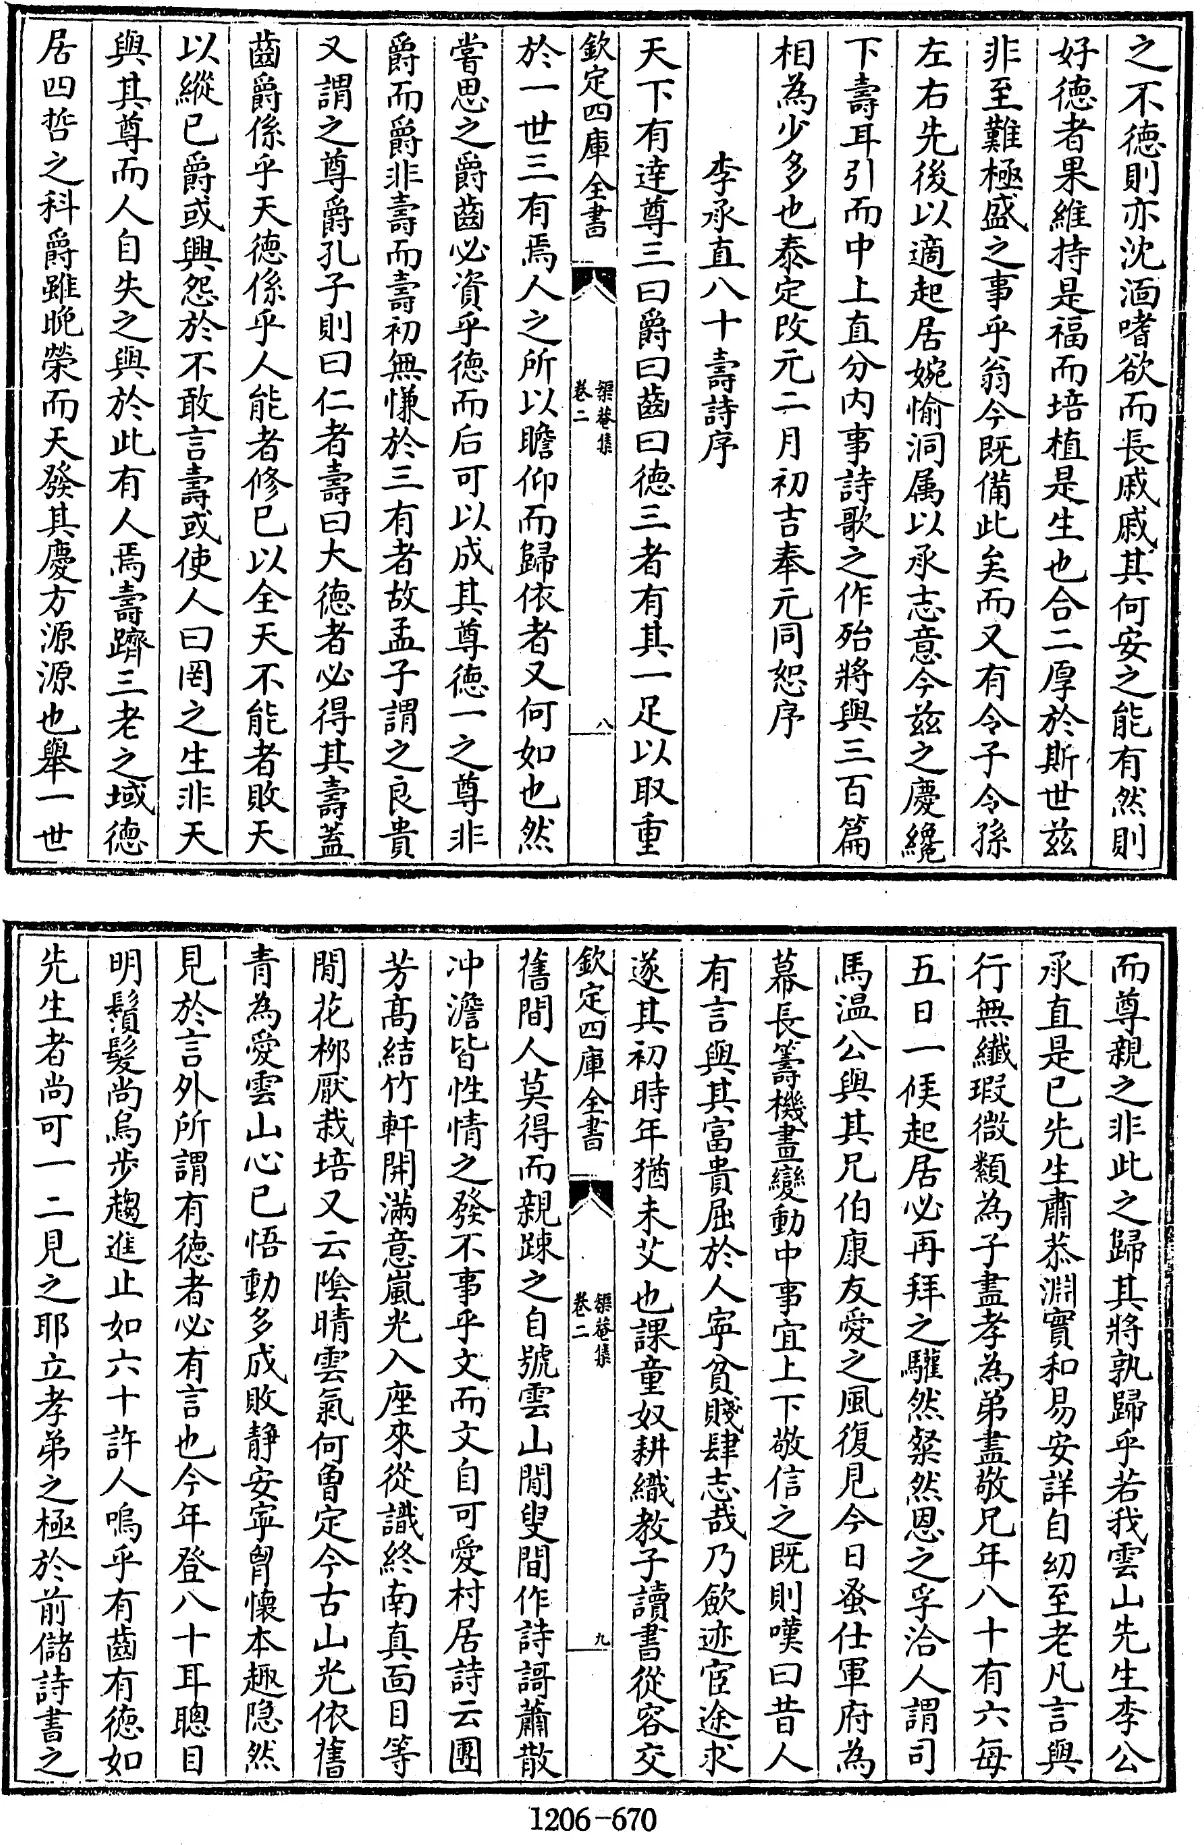 之不德則亦沈湎嗜欲而長戚戚其何安之能有然則
好德者果維持是福而培植是生也合二厚於斯世茲
非至難極盛之事乎翁今既備此矣而又有令子令孫
左右先後以適起居婉愉洞属以承志意今茲之慶纔
下壽耳引而中上直分内事詩歌之作殆將與三百篇
相為少多也泰定改元二月初吉奉元同恕序
李承直八十壽詩序
天下有達尊三曰爵曰齒曰德三者有其一足以取重
欽定四庫全書
榘菴集
卷二
八
於一世三有焉人之所以瞻仰而歸依者又何如也然
嘗思之爵齒必資乎德而后可以成其尊德一之尊非
爵而爵非壽而壽初無慊於三有者故孟子謂之良貴
又謂之尊爵孔子則曰仁者壽曰大德者必得其壽蓋
齒爵係乎天德係乎人能者修已以全天不能者敗天
以縱已爵或興怨於不敢言壽或使人曰罔之生非天
與其尊而人自失之與於此有人焉壽躋三老之域德
居四哲之科爵雖晚榮而天發其慶方源源也舉一世
而尊親之非此之歸其將孰歸乎若我雲山先生李公
承直是已先生肅恭淵實和易安詳自幼至老凡言與
行無纖瑕微纇為子盡孝為弟盡敬兄年八十有六每
五日一候起居必再拜之驩然粲然恩之孚洽人謂司
馬温公與其兄伯康友愛之風復見今日蚤仕軍府為
幕長籌機畫變動中事宜上下敬信之既則嘆曰昔人
有言與其富貴屈於人寧貧賤肆志哉乃歛迹宦途求
遂其初時年猶未艾也課童奴耕織教子讀書從容交
欽定四庫全書
榘菴集
卷二
九
舊間人莫得而親踈之自號雲山閒叟間作詩謌蕭散
冲澹皆性情之發不事乎文而文自可愛村居詩云團
芳高結竹軒開滿意嵐光入座來從識終南真面目等
閒花栁厭栽培又云陰晴雲氣何曾定今古山光依舊
青為愛雲山心已悟動多成敗静安寧胷懷本趣隐然
見於言外所謂有德者必有言也今年登八十耳聰目
明鬚髮尚烏步趨進止如六十許人嗚乎有齒有德如
先生者尚可一二見之耶立孝弟之極於前儲詩書之
1206-670